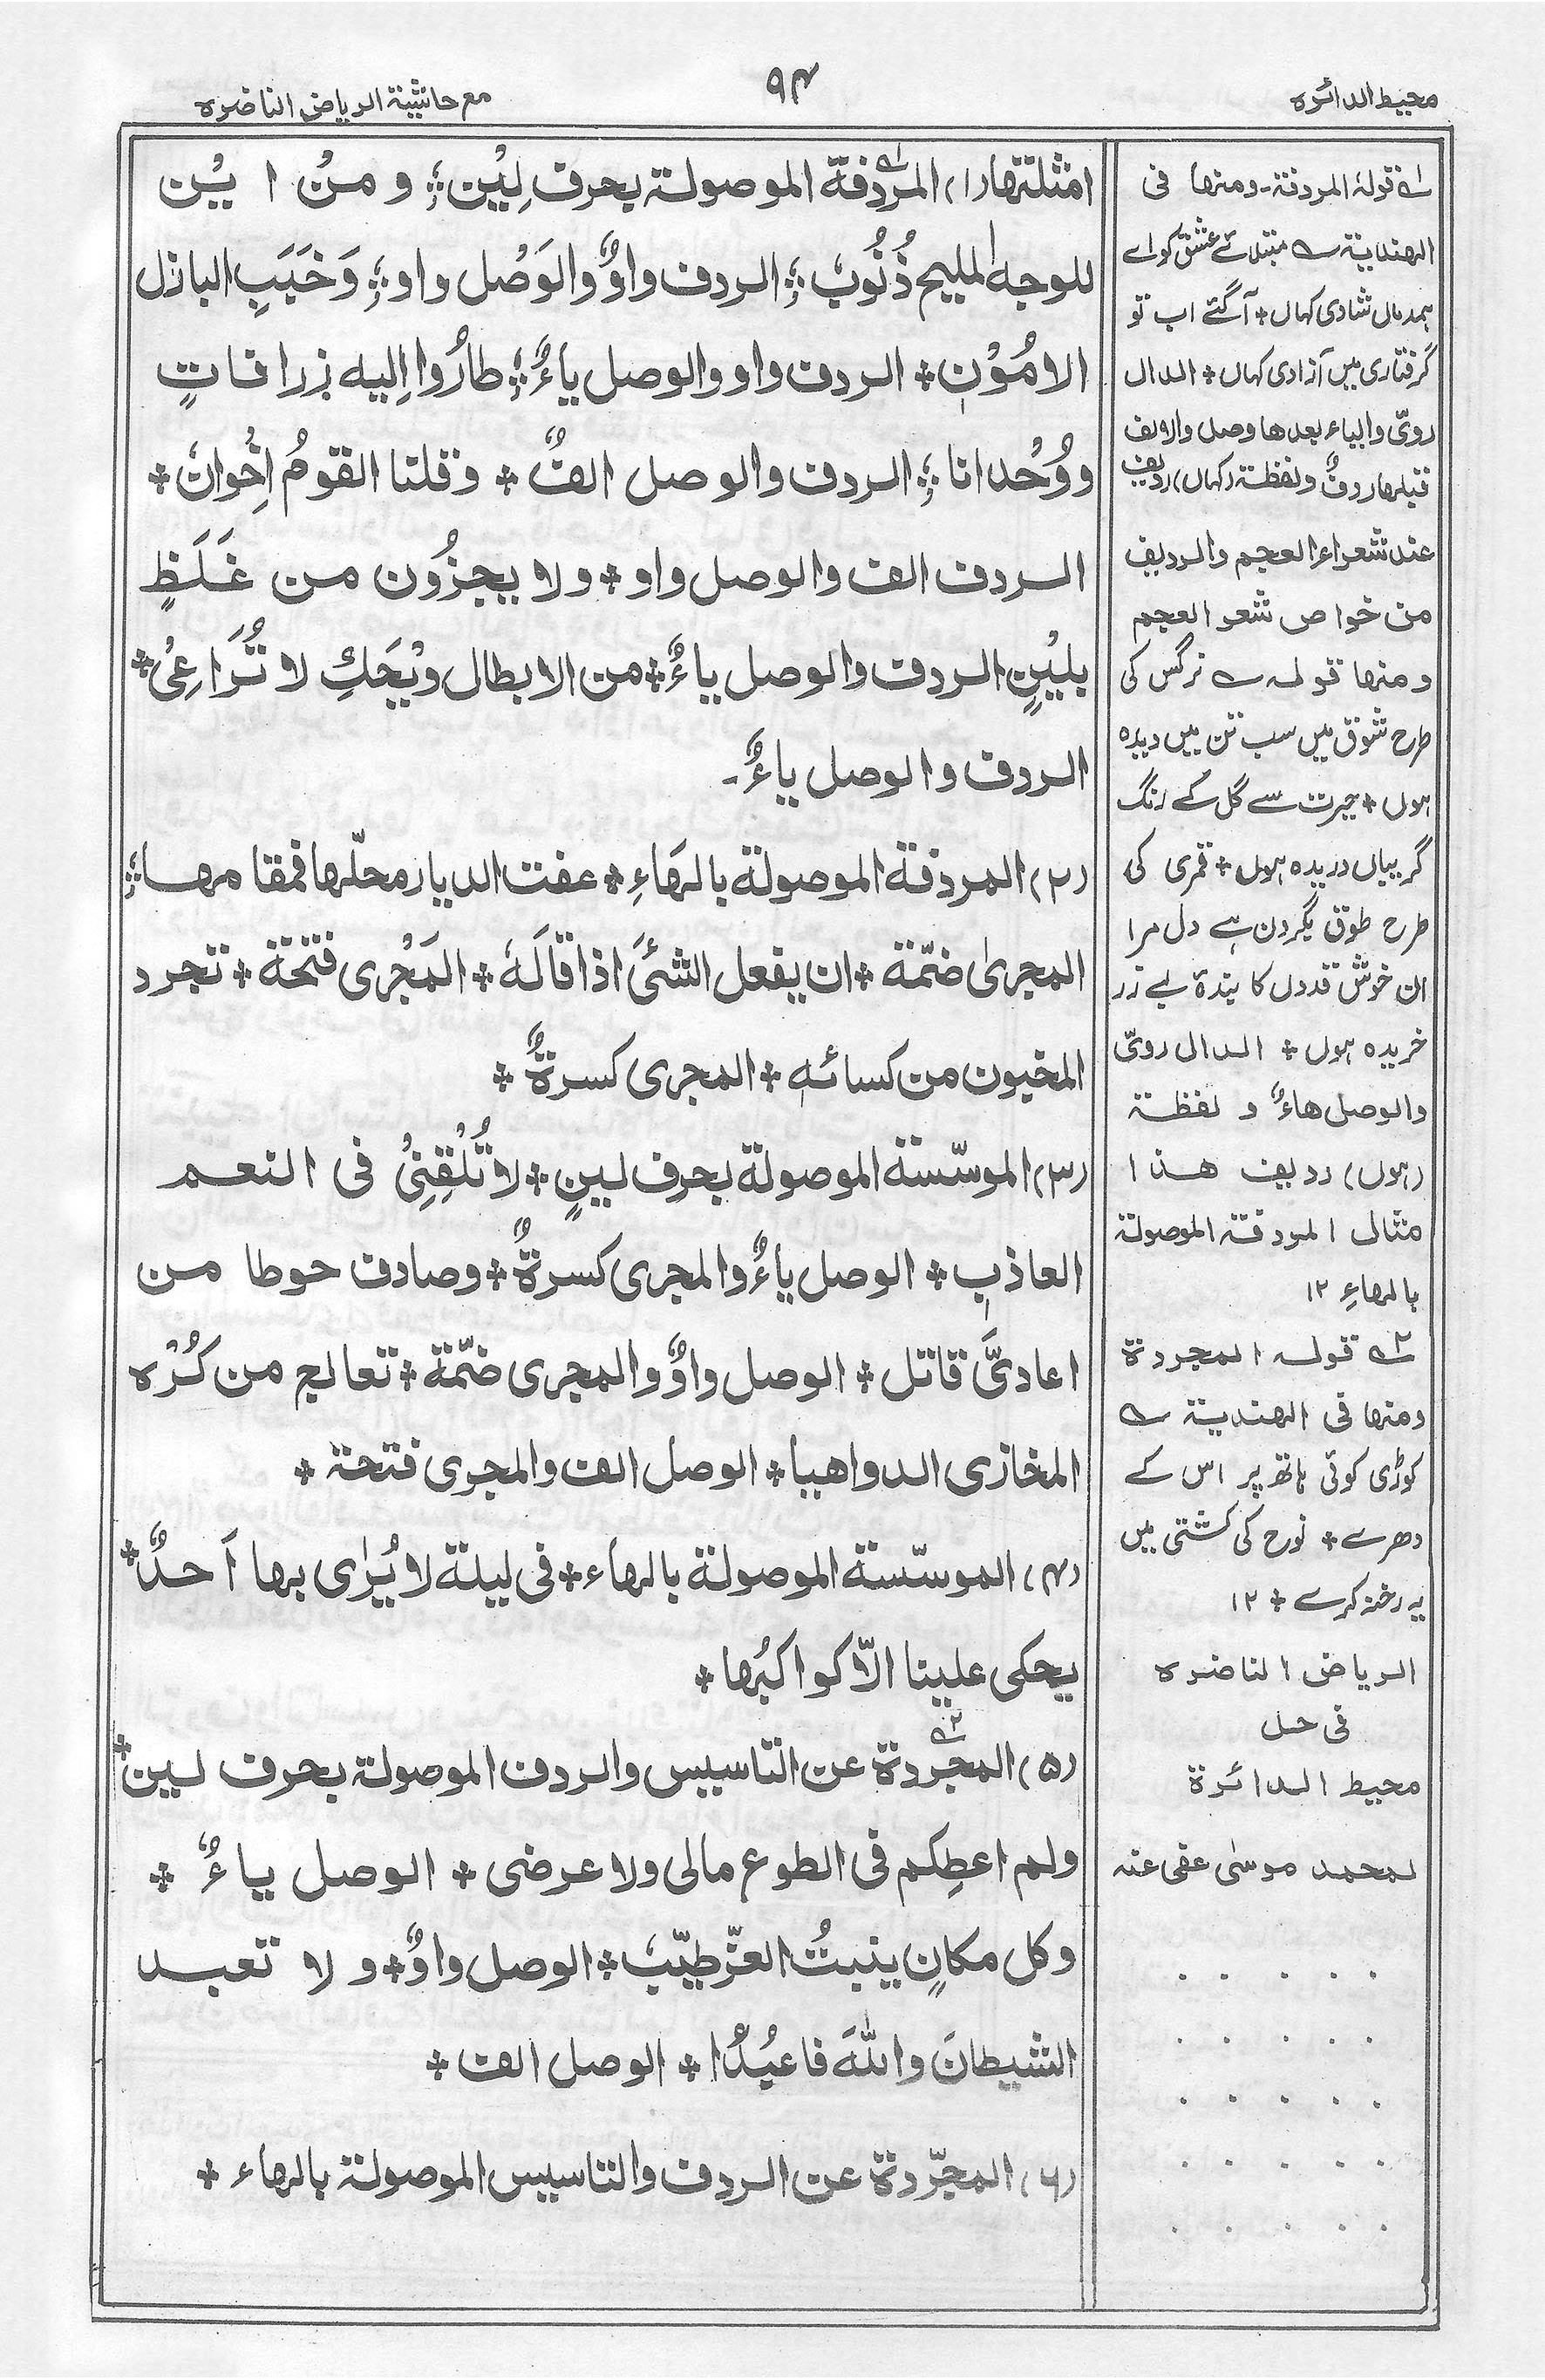 محیط الدائرہ
۹۴
مع حاشیۃ الریاض الناضرہ
امثلتھا (۱) المُردَفۃ الموصولۃ بحرف لِیْن ؛ ومنُ ا یْن
للوجہ الملیح ذُنُوبٗ ؛ الردف واوٌ والوَصْل واو ؛ وَخَبَبِ البازل
الامُوْنٖ ٭ الردف واو والوصل یاءٌ ؛ طارُوا اِلیہ زرافاتٍ
ووُحْدانا ؛ الردف والوصل الفٌ ٭ وقلنا القومُ اِخْوانٗ ٭
الردف الف والوصل واو ٭ ولا یجزُون من غَلَظٍ
بلیْنٍ الردف والوصل یاءٌ ٭ من الابطال ویْحَکِ لا تُرَاعِیْ ٭
الردف والوصل یاءٌ۔
(۲) المردفۃ الموصولۃ بالھَاءِ ٭ عفت الدیار محلّھا فمقامھا ؛
المجریٰ ضمّۃ ٭ ان یفعل الشئَ اذا قالَہٗ ٭ المَجْری فتحۃ ٭ تجرد
المخیون من کسائہٖ ٭ المجری کسرۃٌ ٭
(۳) الموسّسۃ الموصولۃ بحرف لینٍ ٭ لا تُلْقِنِیْ فی النعم
العاذبٖ ٭ الوصل یاءٌ والمجری کسرۃٌ ٭ وصادف حوطا من
اعادیَّ قاتل ٭ الوصل واوٌ والمجری ضمّۃ ٭ تعالج من کُرْہ
المخازی الدواھیا ٭ الوصل الف والمجری فتحۃ ٭
(۴) الموسّسۃ الموصولۃ بالھاء ٭ فی لیلۃ لا یُرٰی بھا اَحدٌ ٭
یحکی علینا الّا کواکبُھا ٭
(۵) المجّردۃ عن التاسیس والردف الموصولۃ بحرف لین ٭
ولم اعطِکم فی الطوع مالی ولا عرضی ٭ الوصل یاءٌ ٭
وکل مکانٍ ینبتُ العزّ طیّبٗ ٭ الوصل واوٌ ٭ ولا تعبد
الشیطانَ واللّٰہَ فاعبُدُا ٭ الوصل الف ٭
(۶) المجّردۃ عن الردف والتاسیس الموصولۃ بالھاء ٭
۱ قولہ المردفۃ۔ ومنھا فی
الھندیۃ ؎ مبتلائے عشق کو اے
ہمدماں شادی کہاں ٭ آگئے اب تو
گرفتاری میں آزادی کہاں ٭ الدال
رویّ والیاء بعدھا وصل والالف
قبلھا ردفٌ ولفظۃ (کہاں) ردیف
عند شعراء العجم والردیف
من خواص شعر العجم
ومنھا قولہ ؎ نرگس کی
طرح شوق میں سب تن میں دیدہ
ہوں ٭ حیرت سے گل کے رنگ
گریباں دریدہ ہوں ٭ قمری کی
طرح طوق بگردن ہے دل مرا
ان خوش قدوں کا بندۂ بے زر
خریدہ ہوں ٭ الدال رویّ
والوصل ھاءٌ و لفظۃ
(ہوں) ردیف ھذا
مثال المردفۃ الموصولۃ
بالھاءِ ۱۲
۲ قولہ المجردۃ
ومنھا فی الھندیۃ ؎
کوڑی کوئی ہاتھ پر اس کے
دھرے ٭ نوح کی کشتی میں
یہ رخنہ کرے ٭ ۱۲
الریاض الناضرہ
فی حل
محیط الدائرۃ
لمحمد موسٰی عفی عنہ